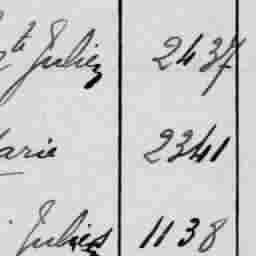 te Julien 2437
Marie 2341
Julien 1138